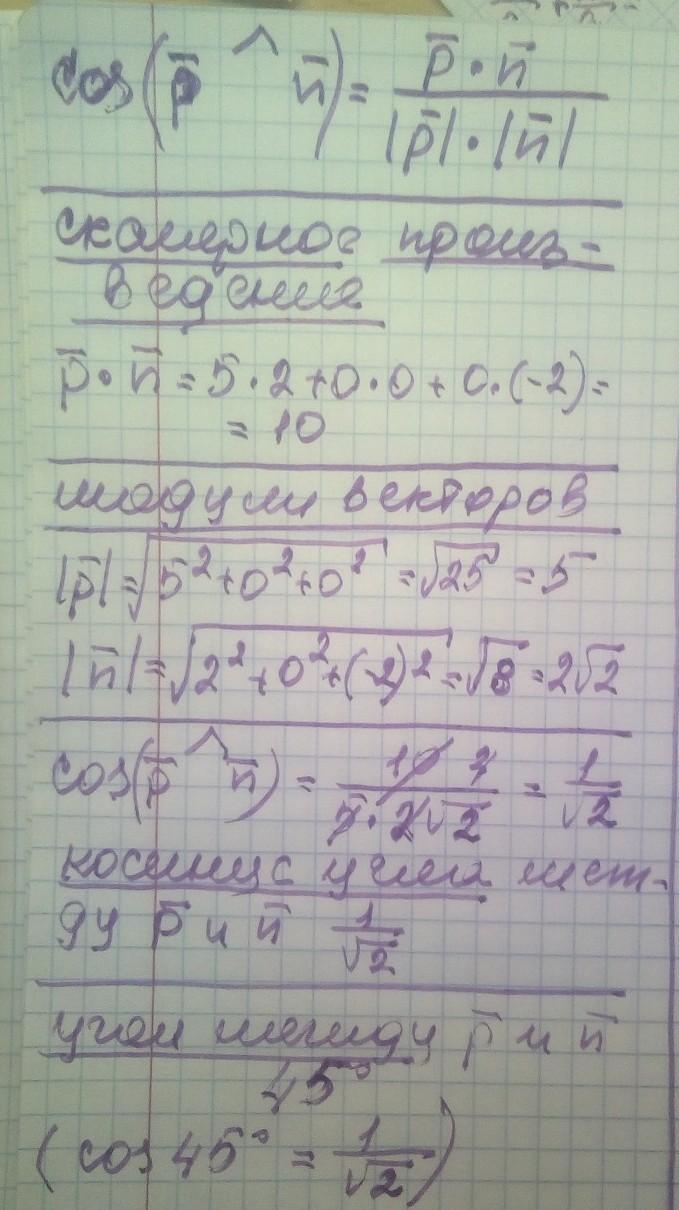 cos(p̅ ^ n̅) = p̅ · n̅ / |p̅| · |n̅|
скалярное произ-
ведение
p̅ · n̅ = 5 · 2 + 0 · 0 + 0 · (-2) =
= 10
модули векторов
|p̅| = √(5² + 0² + 0²) = √25 = 5
|n̅| = √(2² + 0² + (-2)²) = √8 = 2√2
cos(p̅ ^ n̅) = 10 1 / 5 · 2√2 = 1/√2
косинус угла меж-
ду p̅ и n̅ 1/√2
угол между p̅ и n̅
45°
(cos 45° = 1/√2)